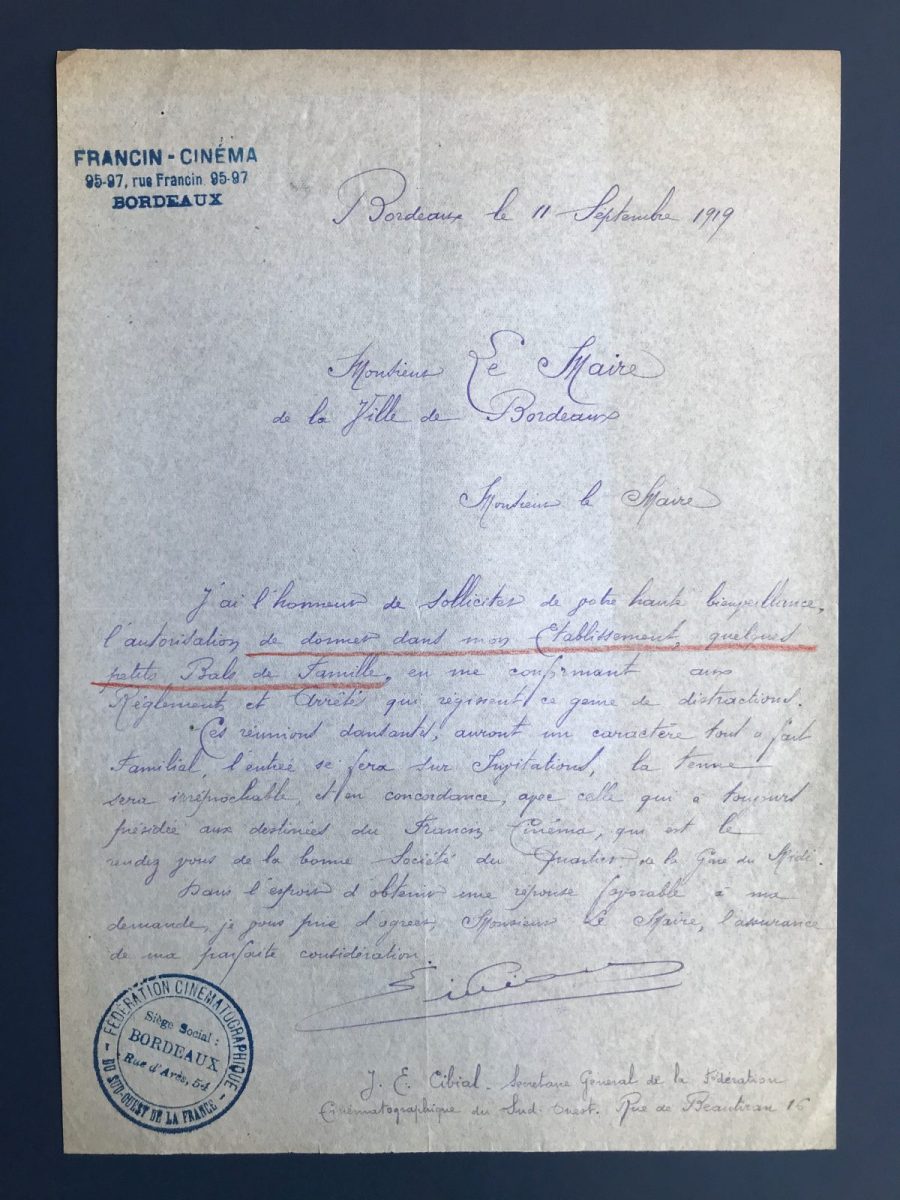 FRANCIN - CINÉMA
95-97, rue Francin 95-97
BORDEAUX
Bordeaux le 11 Septembre 1919
Monsieur Le Maire
de la Ville de Bordeaux
Monsieur le Maire
J'ai l'honneur de solliciter de votre haute bienveillance,
l'autorisation de donner dans mon Etablissement, quelques
petits Bals de Famille, en me conformant aux
Réglements et Arrêtés qui régissent ce genre de distractions.
Ces réunions dansantes, auront un caractère tout à fait
Familial, l'entrée se fera sur Invitations, la tenue
sera irréprochable, et en concordance, avec celle qui a toujours
présidée aux destinées du Francin Cinéma, qui est le
rendez vous de la bonne Société du Quartier de la Gare du Midi.
Dans l'espoir d'obtenir une réponse favorable à ma
demande, je vous prie d'agréer, Monsieur Le Maire, l'assurance
de ma parfaite considération.
FÉDÉRATION CINÉMATOGRAPHIQUE
DU SUD-OUEST DE LA FRANCE
Siège Social :
BORDEAUX
Rue d'Arès, 54
J. E. Cibial. Secretaire General de la Fédération
Cinématographique du Sud-Ouest. Rue de Beautiran 16